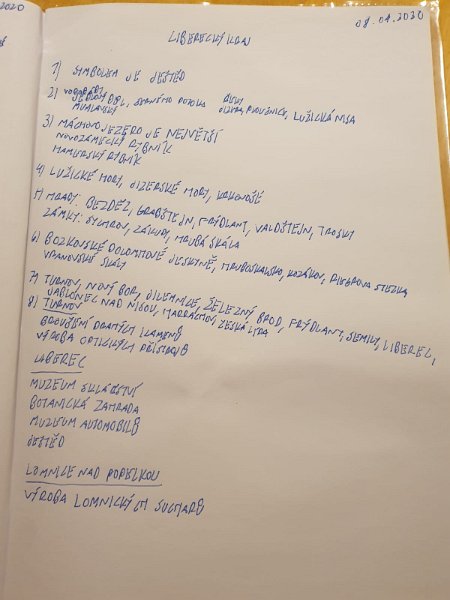 2020
08.04.2020
LIBERECKÝ KRAJ
1) SYMBOLEM JE JEŠTĚD
2) VODOPÁDY: ŘEKY:
JEDLOVÝ DŮL, ČERNÉHO POTOKA JIZERA, PLOUČNICE, LUŽICKÁ NISA
MUMLAVSKÝ
3) MÁCHOVO JEZERO JE NEJVĚTŠÍ
NOVOZÁMECKÝ RYBNÍK
HAMERSKÝ RYBNÍK
4) LUŽICKÉ HORY, JIZERSKÉ HORY, KRKONOŠE
5) HRADY: BEZDĚZ, GRABŠTEJN, FRÝDLANT, VALDŠTEJN, TROSKY
ZÁMKY: SYCHROV, ZÁKUPY, HRUBÁ SKÁLA
6) BOZKOVSKÉ DOLOMITOVÉ JESKYNĚ, HRUBOSKALSKO, KOZÁKOV, RIEGROVA STEZKA
VRANOVSKÉ SKÁLY
7) TURNOV, NOVÝ BOR, JILEMNICE, ŽELEZNÝ BROD, FRÝDLANT, SEMILY, LIBEREC,
JABLONEC NAD NISOU, HARRACHOV, ČESKÁ LÍPA
8) TURNOV
BROUŠENÍ DRAHÝCH KAMENŮ
VÝROBA OPTICKÝCH PŘÍSTROJŮ
LIBEREC
MUZEUM SKLÁŘSTVÍ
BOTANICKÁ ZAHRADA
MUZEUM AUTOMOBILŮ
JEŠTĚD
LOMNICE NAD POPELKOU
VÝROBA LOMNICKÝCH SUCHARŮ